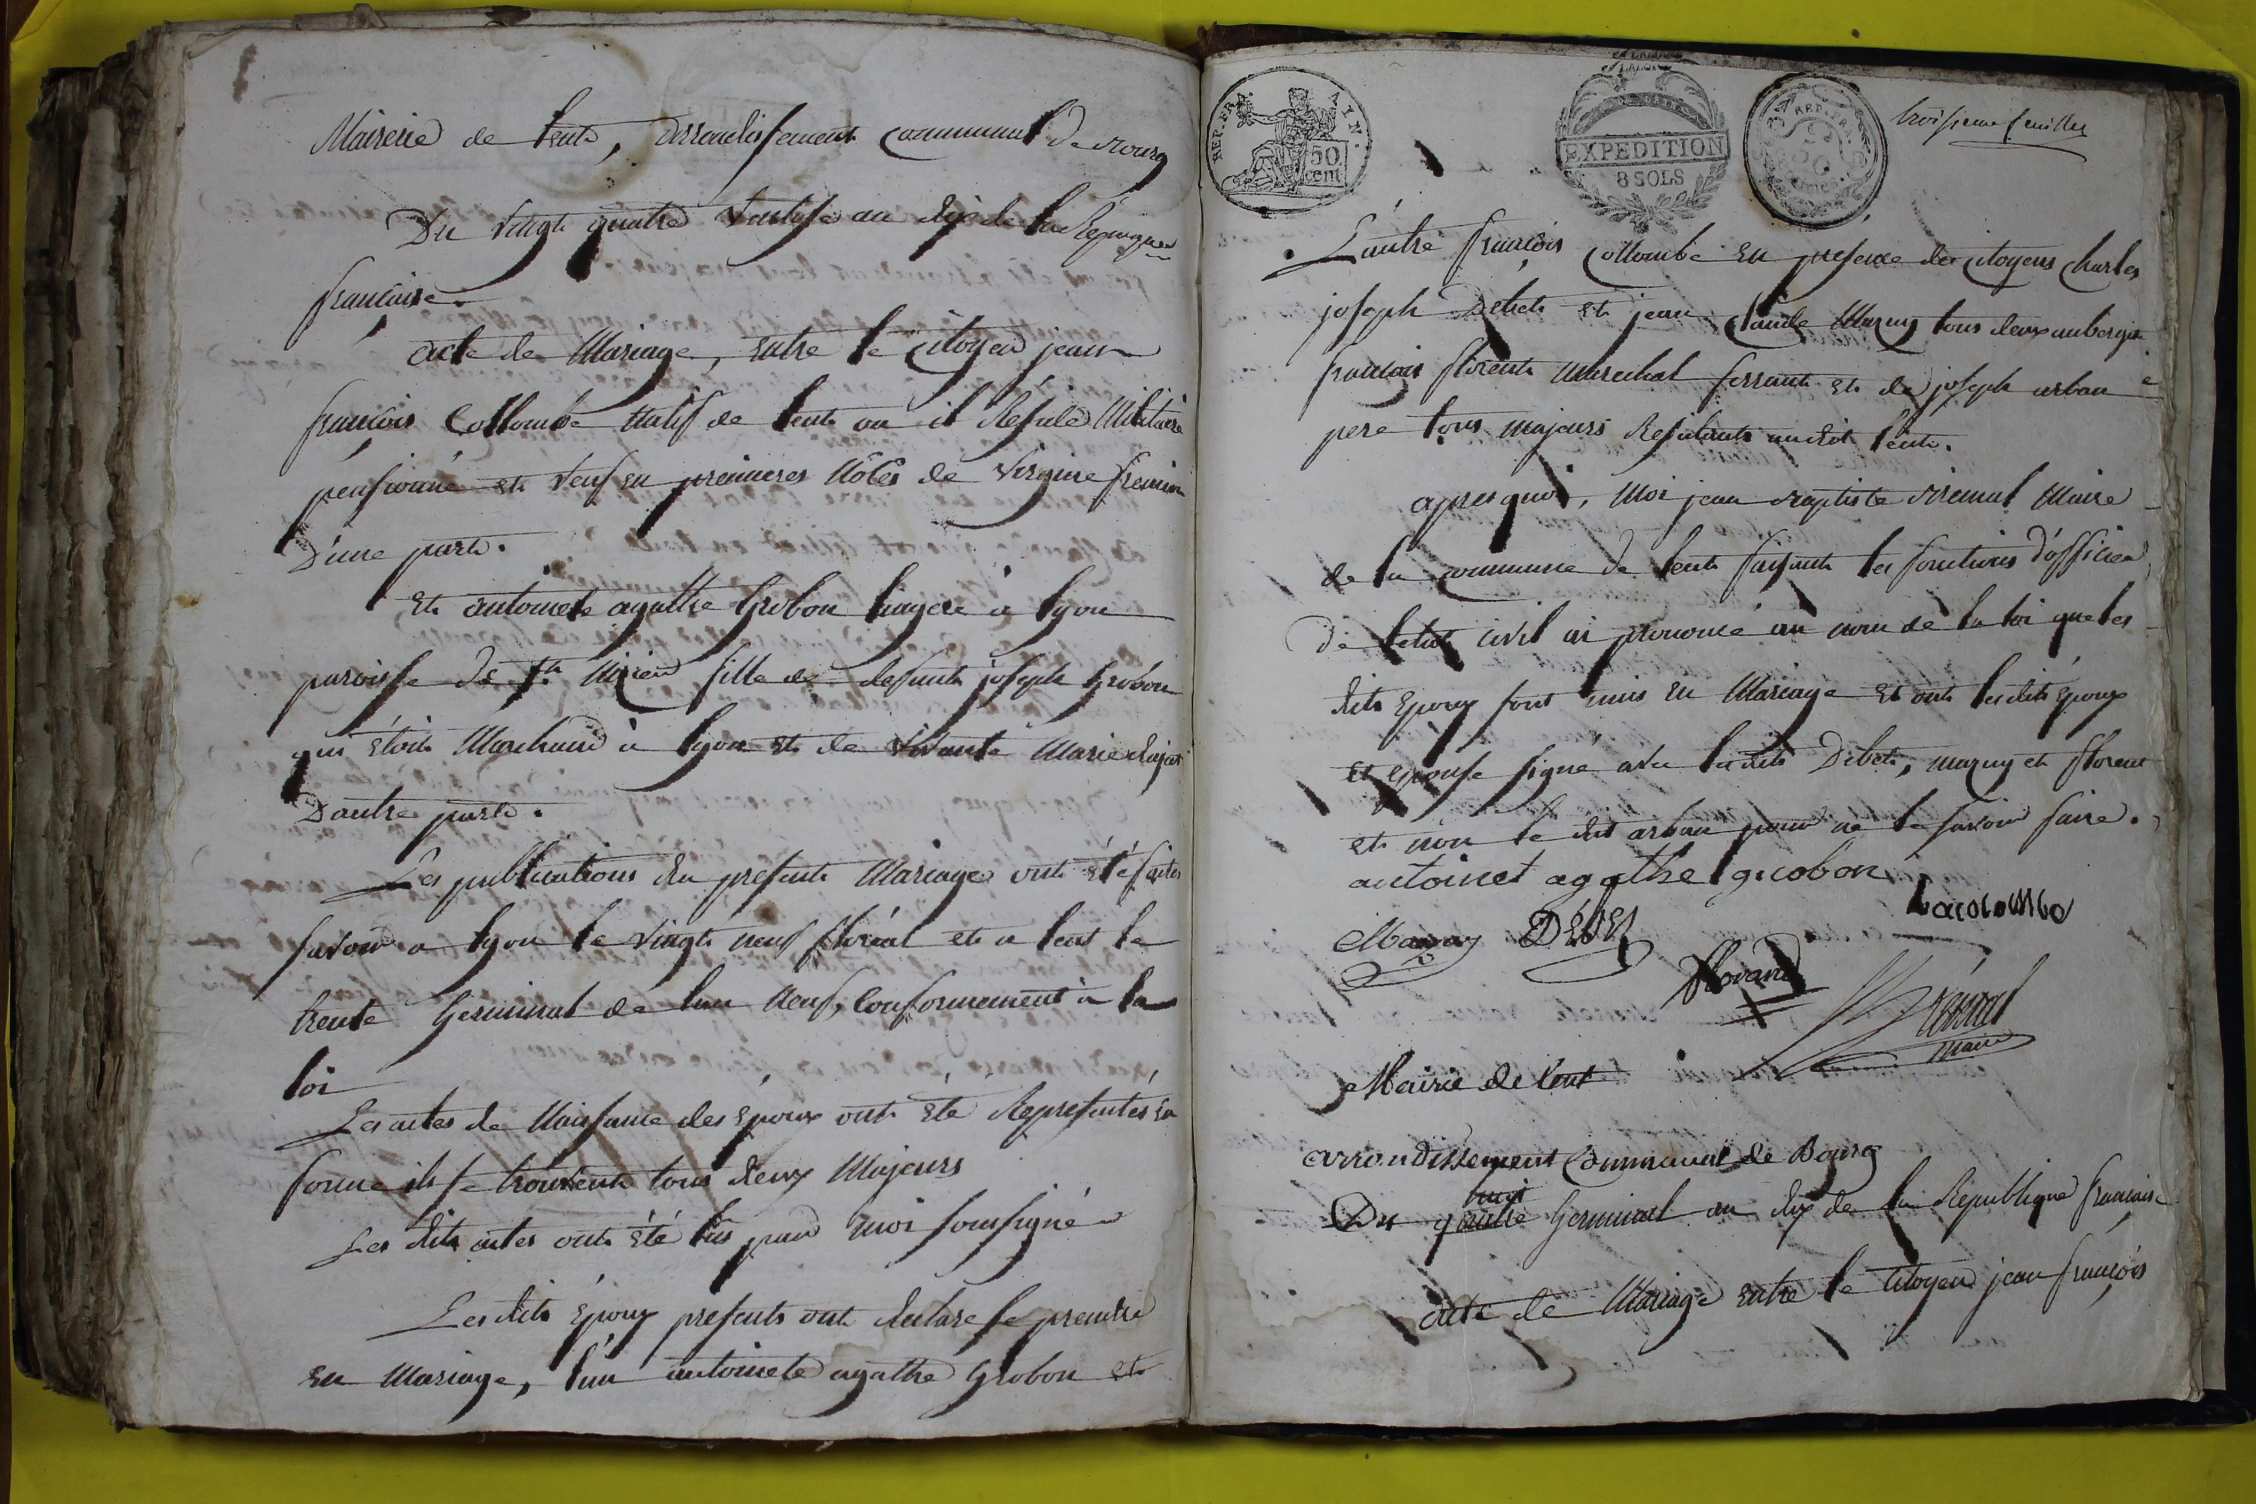 Mairerie de Lent, arrondissement communal de Bourg
Du vingt quatre ventose an dix de la Republique
françaises.
acte de Mariage, entre le citoyen jean
françois Collombe Natif de Lent ou il Reside Militaire
pensionné et veuf en premieres Nôces de Virginie fremion
D'une part.
Et antoinete agathe Grobon lingere à Lyon
paroisse de St. Nizier fille de defunt joseph Grobon
qui étoit Marchand à Lyon et de vivante Marie
D'autre part.
Les publications du present Mariage ont été faites
savoir a Lyon le vingt neuf floréal et a Lent le
trente Germinal de l'an Neuf, Conformement à la
loi
Les actes de Naissance des époux ont été Representés en
forme ils se trouvent tous deux Majeurs
Les dits actes ont été lus par moi soussigné
Les dits époux presents ont declaré se prendre
en Mariage, l'un antoinete agathe Grobon et
REP. FRA. 50 cent
EXPEDITION
8 SOLS
troisieme feuillet
L'autre françois Collombe en présence des citoyens charles
joseph Debet et jean claude Maruy tous deux aubergistes
françois florent marechal ferrant et de joseph arban
pere tous majeurs Residents audit Lent.
apres quoi, Moi jean Baptiste Brevnal Maire
de la commune de Lent faisant les fonctions d'officier
de l'etat civil ai prononcé au nom de la loi que les
dits époux sont unis en Mariage et ont lesdits époux
et epouse signé avec lesdits Debet, maruy et florent
et non le dit arban pour ne le savoir faire.
antoinet agathe grobon
Lacolombe
Maruy DEBET
florand
maire
Mairie de Lent
arrondissement Communal de Bourg
Du quatre Germinal an dix de la Republique française
acte de Mariage entre le Citoyen jean françois